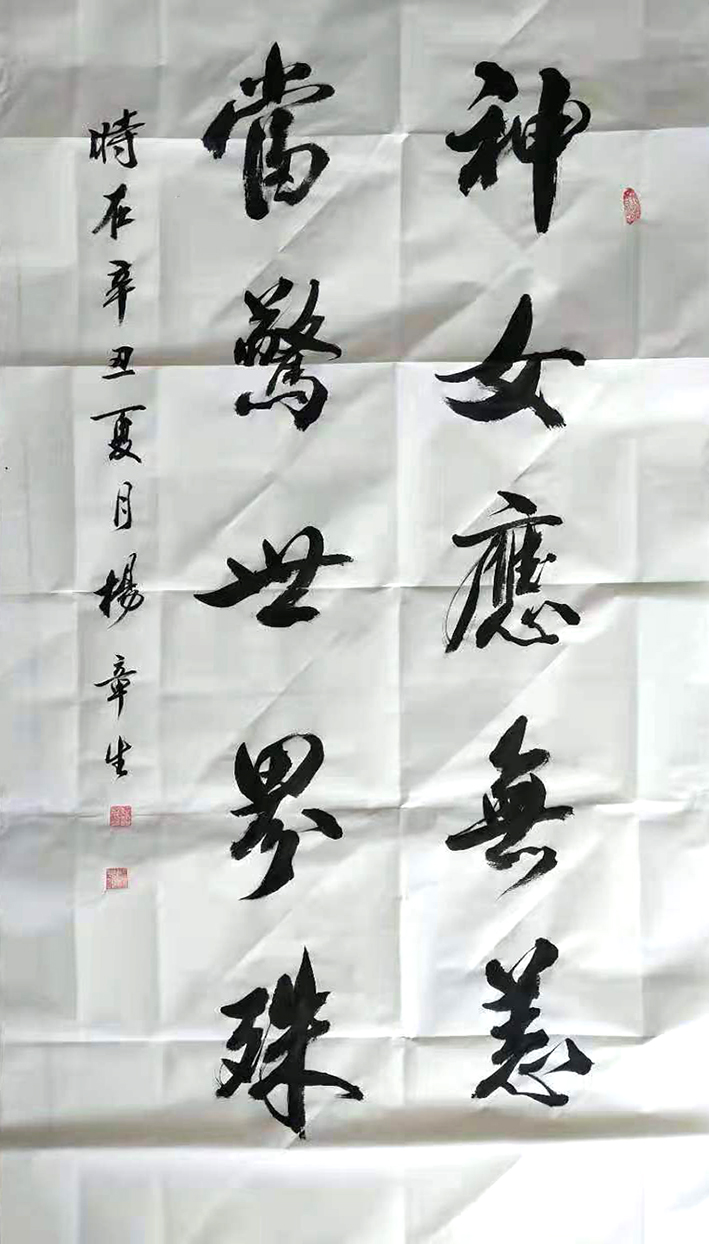 神女應無恙
當驚世界殊
時在辛丑夏月楊章生